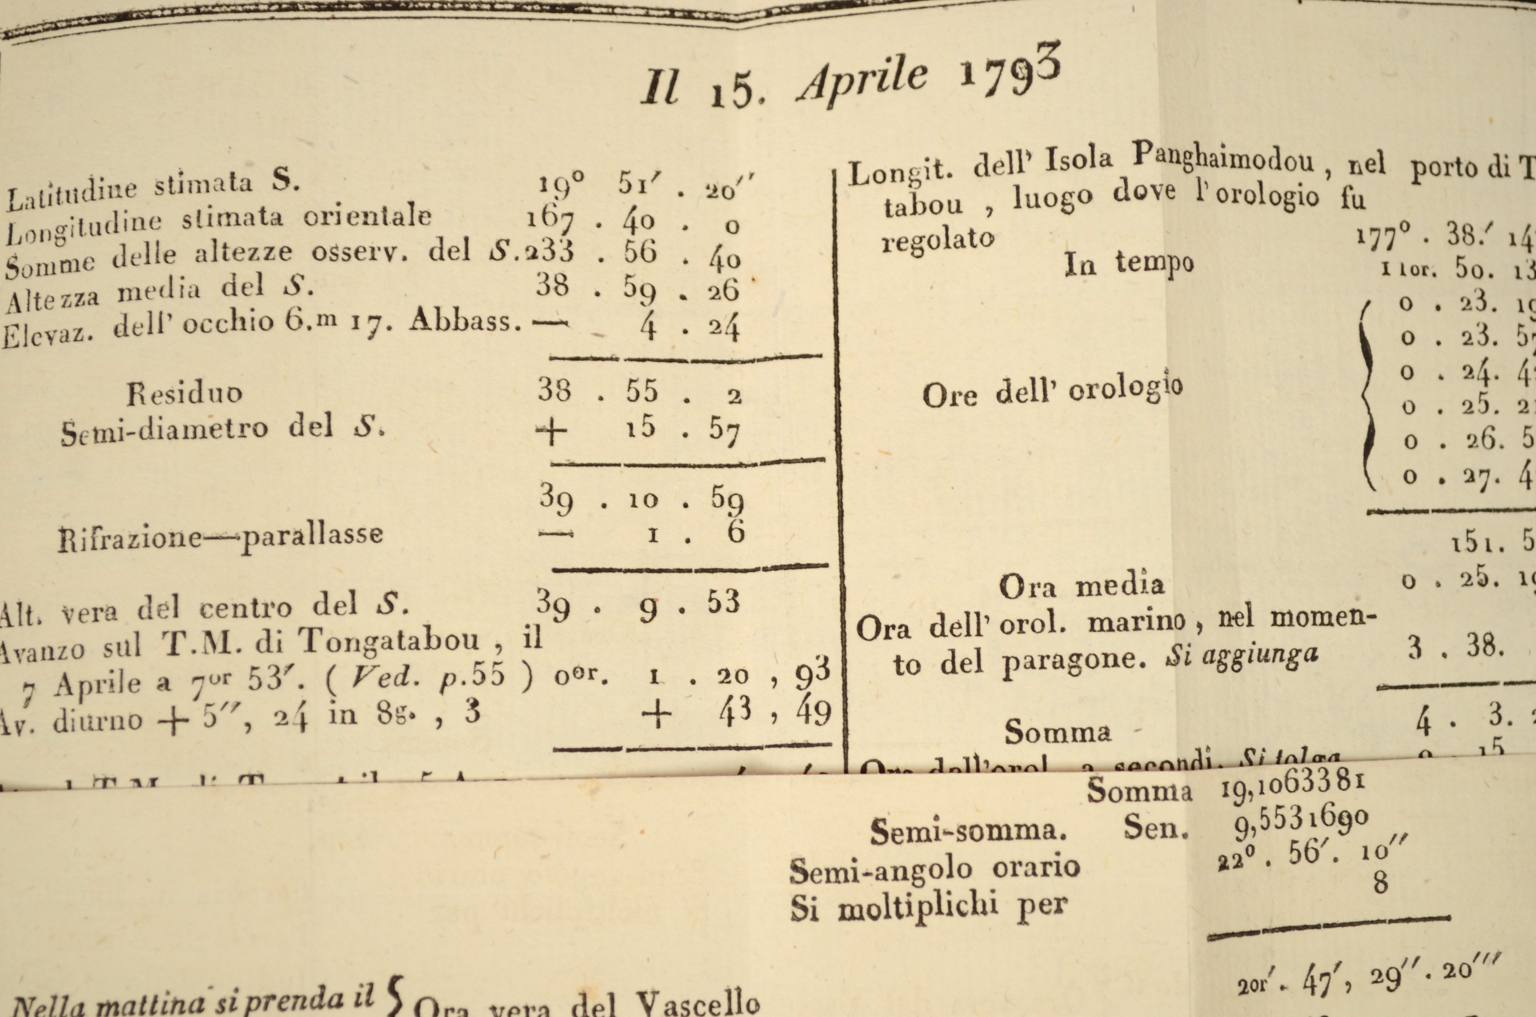 Il 15. Aprile 1793
Latitudine stimata S. 19° 51′ . 20′′
Longitudine stimata orientale 167 . 40 . 0
Somme delle altezze osserv. del S. 233 . 56 . 40
Altezza media del S. 38 . 59 . 26
Elevaz. dell' occhio 6.m 17. Abbass. — 4 . 24
Residuo 38 . 55 . 2
Semi-diametro del S. + 15 . 57
39 . 10 . 59
Rifrazione—parallasse — 1 . 6
Alt. vera del centro del S. 39 . 9 . 53
Avanzo sul T.M. di Tongatabou , il
7 Aprile a 7or 53′. ( Ved. p.55 ) 0or. 1 . 20 , 93
Av. diurno + 5′′, 24 in 8g. , 3 + 43 , 49
Longit. dell' Isola Panghaimodou , nel porto di T
tabou , luogo dove l'orologio fu
regolato 177° . 38.′ 14
In tempo 11or. 50. 13
0 . 23. 19
0 . 23. 57
Ore dell' orologio 0 . 24. 4
0 . 25. 2
0 . 26. 5
0 . 27. 4
151. 5
Ora media 0 . 25. 19
Ora dell' orol. marino , nel momen-
to del paragone. Si aggiunga 3 . 38.
Somma 4 . 3.
Ora dell'orol. a secondi. Si tolga 0 15
Somma 19,1063381
Semi-somma. Sen. 9,5531690
Semi-angolo orario 22° . 56′. 10′′
Si moltiplichi per 8
20r′. 47′, 29′′. 20′′′
Nella mattina si prenda il { Ora vera del Vascello